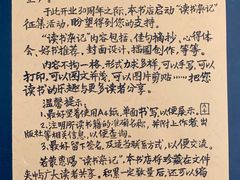 于此开业30周年之际,本书店启动"读书杂记"
征集活动,盼望得到您的支持。
"读书杂记"内容包括,佳句摘抄、心得体
会、好书推荐、封面设计、插图创作等等。
内容不拘一格,形式力求多样,可以手写,可以
打印,可以图文并茂,可以图片剪贴……把您
读书的乐趣与更多读者分享。
温馨提示:
1.最好坚着使用A4纸,单面书写,以便展示。
2.注明所读书籍的准确名称,并附上作者、出
版社等相关信息,以便查询。
3.最好留下签名,及适当联系方式,以便交流。
若蒙惠赐"读书杂记",本书店将珍藏在文件
夹中与广大读者共享。积累一定数量后,还可以编